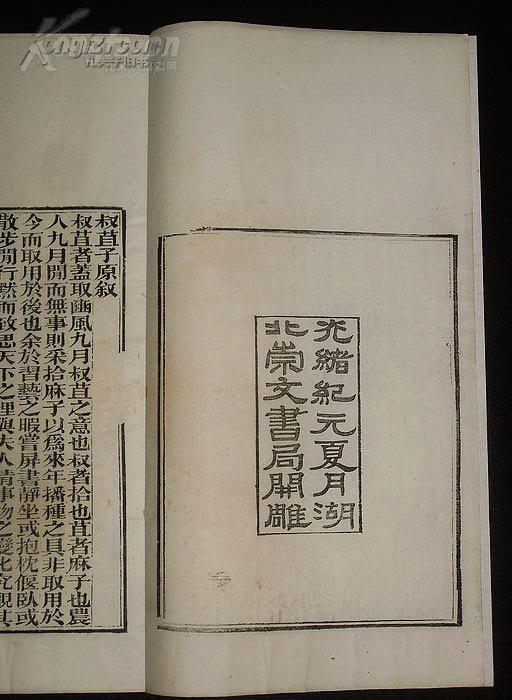 Kongfz.com
孔夫子旧书网
光緒紀元夏月湖
北崇文書局開雕
叔苴子原叙
叔苴者蓋取豳風九月叔苴之意也叔者拾也苴者麻子也農
人九月閒而無事則采拾麻子以爲來年播種之具非取用於
今而取用於後也余於習藝之暇嘗屏書靜坐或抱枕偃臥或
散步閒行默而致思天下之理與夫人情事物之變化究觀其